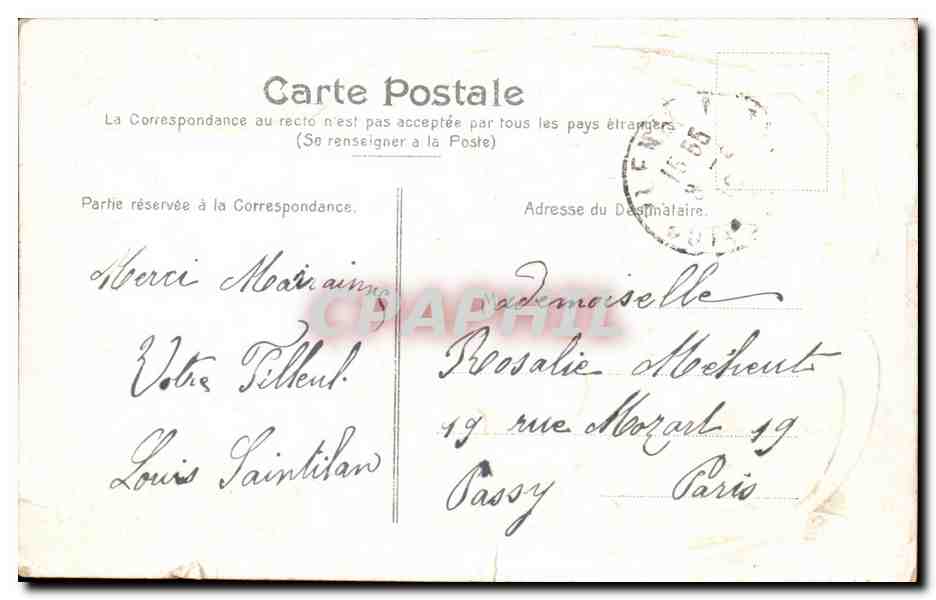 Carte Postale
La Correspondance au recto n'est pas acceptée par tous les pays étrangers
(Se renseigner a la Poste)
Partie réservée à la Correspondance.
Adresse du Destinataire.
15 55
Merci Marraine
Votre Filleul
Louis Saintilan
Mademoiselle
Rosalie Méheut
19 rue Mozart 19
Passy Paris
CPAPHIL